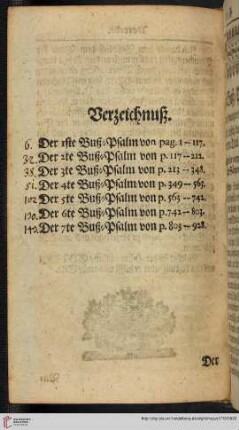 Verzeichnuß.
6. Der 1ste Buß-Psalm von pag. 1--117.
32. Der 2te Buß-Psalm von p. 117--212.
38. Der 3te Buß-Psalm von p. 213--348.
51. Der 4te Buß-Psalm von p. 349--563.
102. Der 5te Buß-Psalm von p. 563--742.
130. Der 6te Buß-Psalm von p. 742--803.
142. Der 7te Buß-Psalm von p. 803--928.
Der